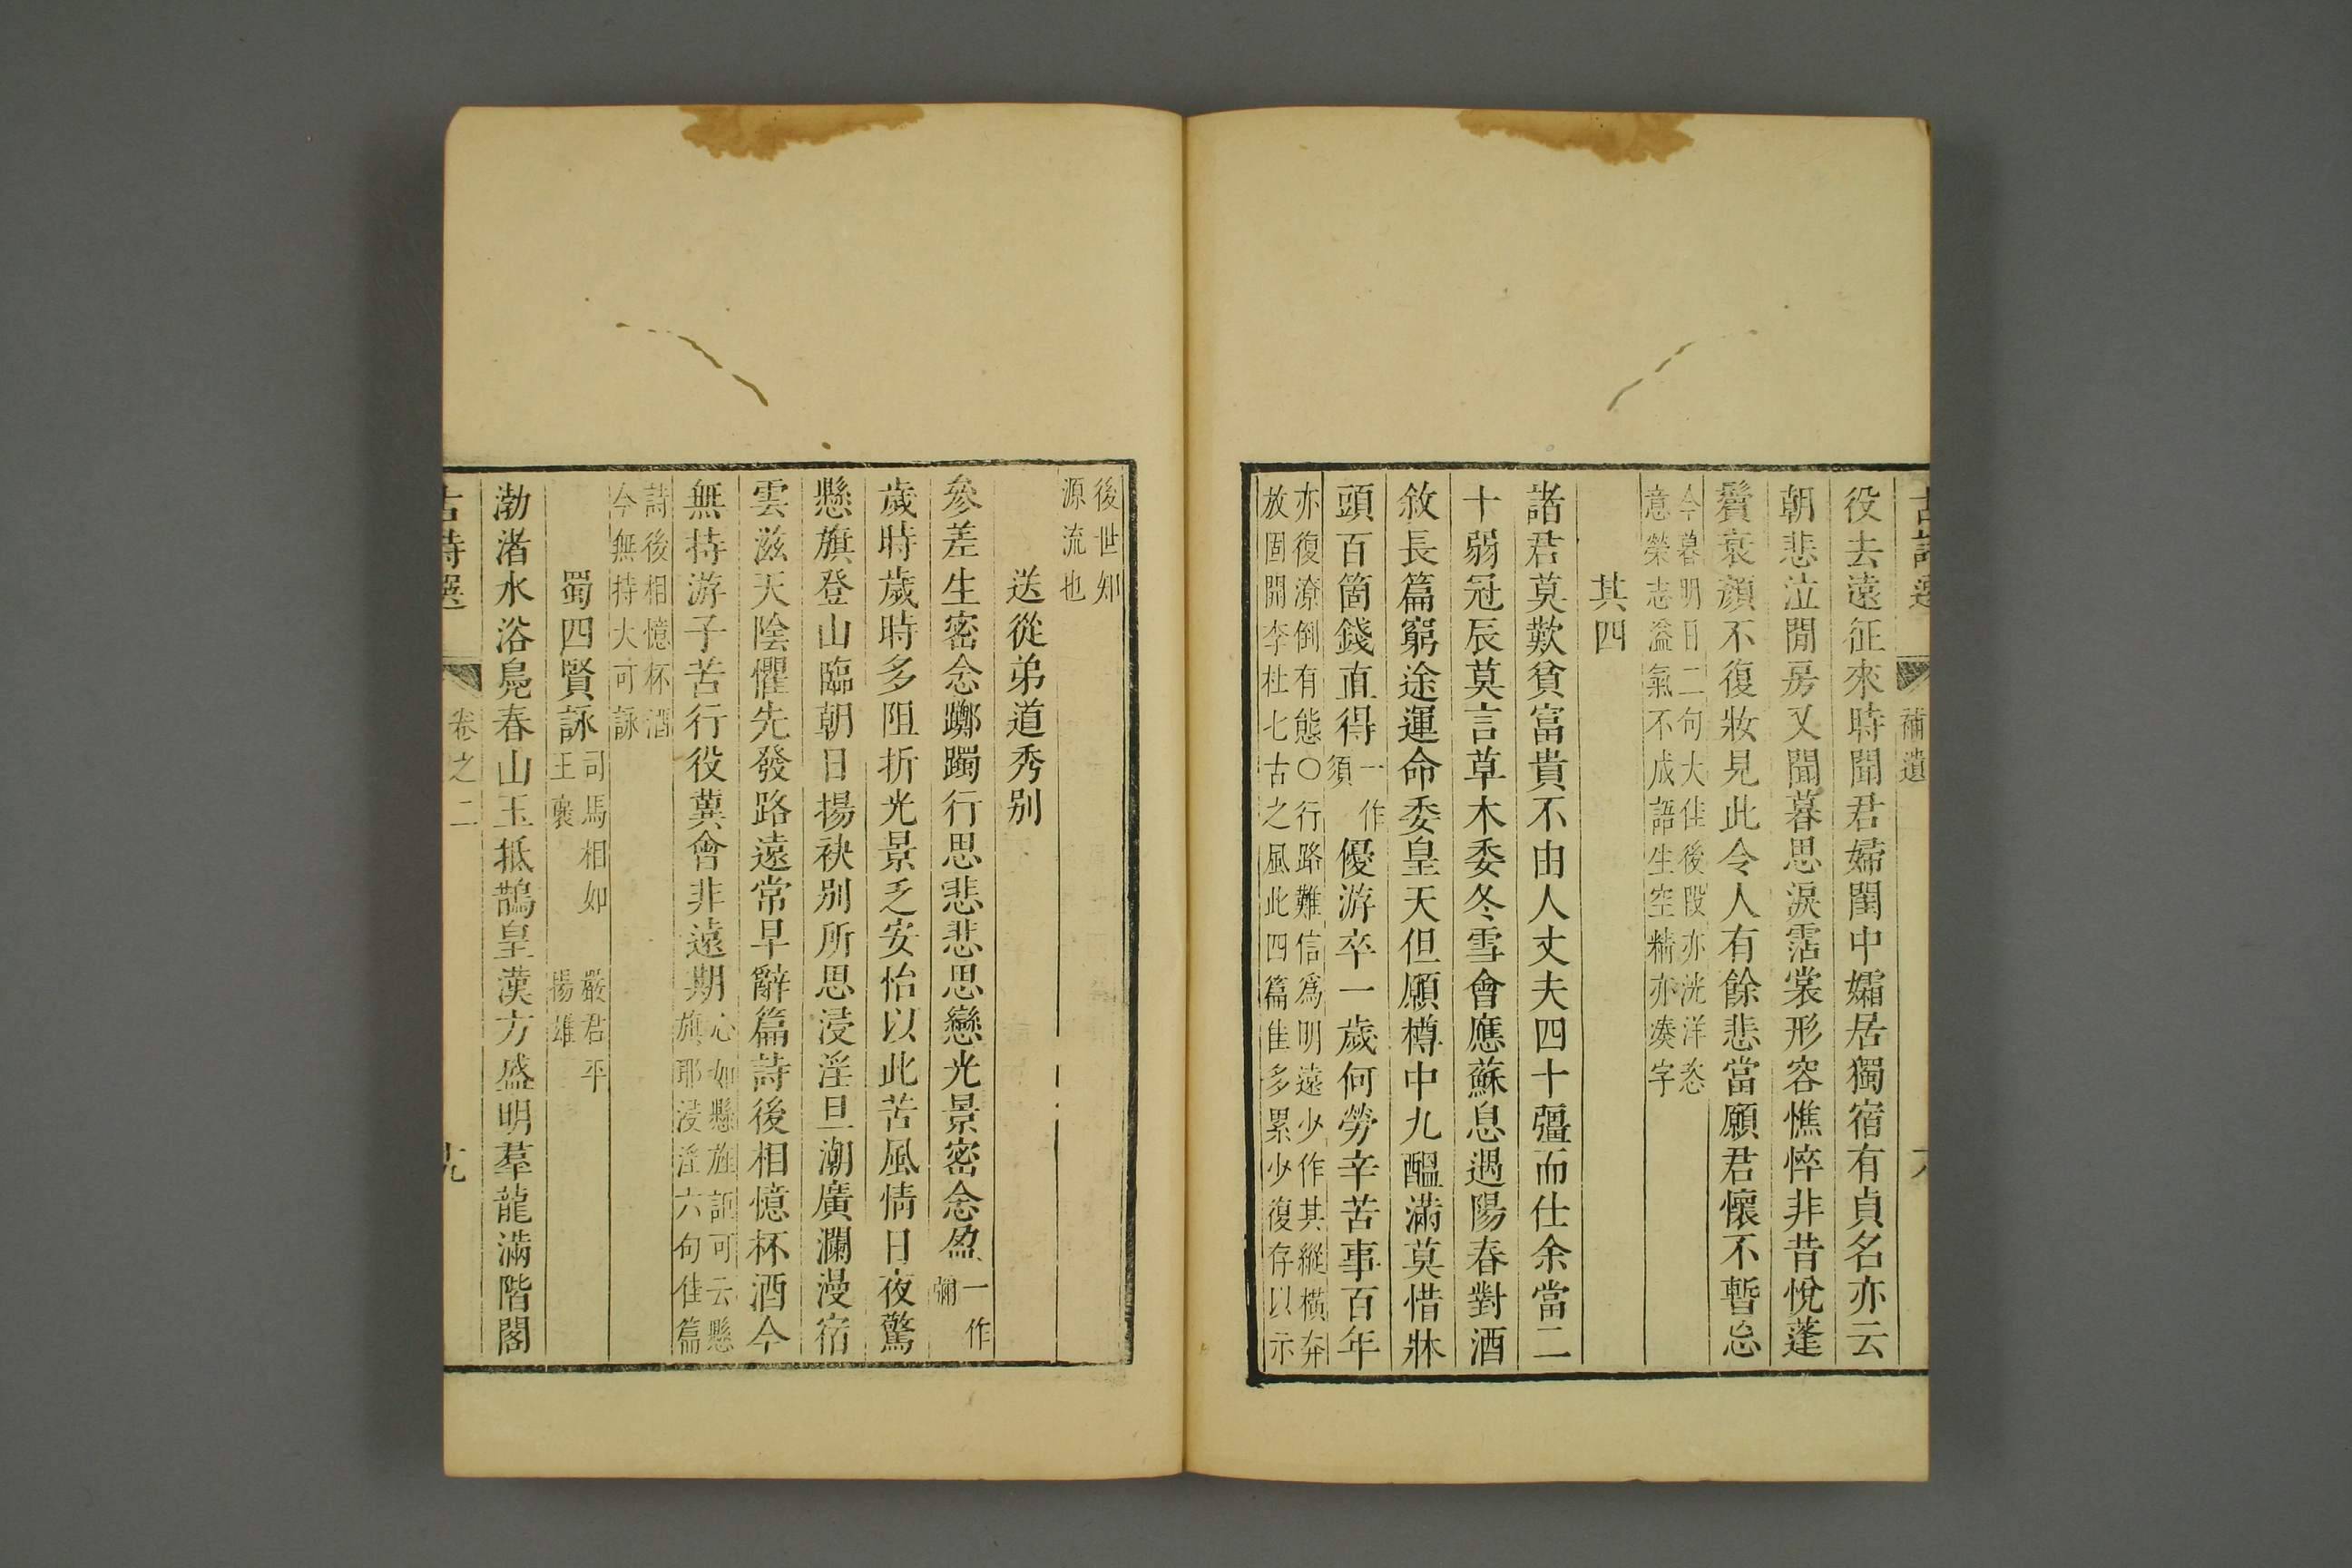 古詩選 補遺
役去遠征來時聞君婦閨中孀居獨宿有貞名亦云
朝悲泣閒房又聞暮思淚霑裳形容憔悴非昔悅蓬
鬢衰顔不復妝見此令人有餘悲當願君懷不暫忘
今暮明日二句大佳後段亦洸洋恣
意榮志溢氣不成語生空精亦湊字
其四
諸君莫歎貧富貴不由人丈夫四十彊而仕余當二
十弱冠辰莫言草木委冬雪會應蘇息遇陽春對酒
敘長篇窮途運命委皇天但願樽中九醞滿莫惜牀
頭百箇錢直得一作須優游卒一歲何勞辛苦事百年
亦復潦倒有態〇行路難信爲明遠少作其縱橫奔
放固開李杜七古之風此四篇佳多累少復存以示
後世知
源流也
送從弟道秀別
參差生密念躑躅行思悲悲思戀光景密念盈一作彌
歲時歲時多阻折光景乏安怡以此苦風情日夜驚
懸旗登山臨朝日揚袂別所思浸淫旦潮廣瀾漫宿
雲滋天陰懼先發路遠常早辭篇詩後相憶杯酒今
無持游子苦行役冀會非遠期心如懸旌詎可云懸
旗耶浸淫六句佳篇
詩後相憶杯酒
今無持大可詠
蜀四賢詠司馬相如 嚴君平
王襃 揚雄
渤渚水浴鳧春山玉抵鵲皇漢方盛明羣龍滿階閣
古詩選 卷之二 十九